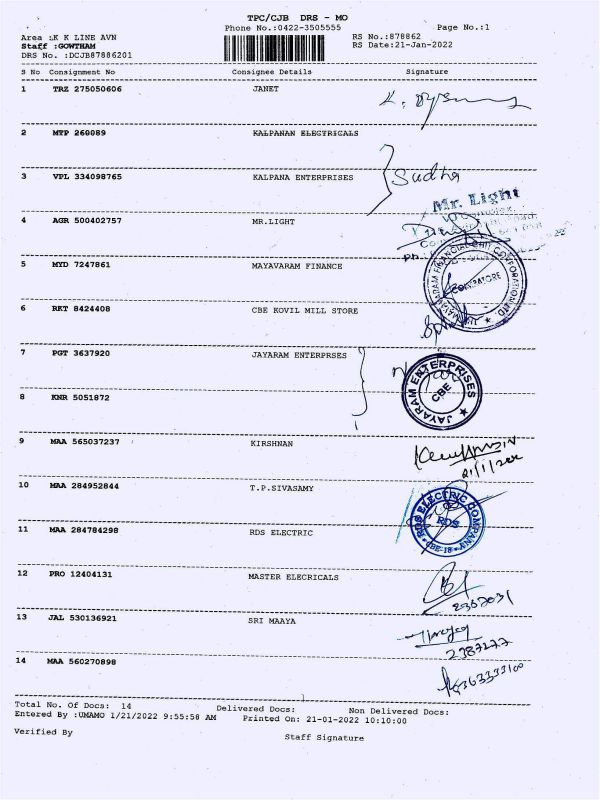 TPC/CJB DRS - MO
Phone No.:0422-3505555 Page No.:1
Area :K K LINE AVN RS No.:878862
Staff :GOWTHAM RS Date:21-Jan-2022
DRS No. :DCJB87886201
S No Consignment No Consignee Details Signature
1 TRZ 275050606 JANET
2 MTP 260089 KALPANAN ELECTRICALS
3 VPL 334098765 KALPANA ENTERPRISES Sudha
Mr. Light
4 AGR 500402757 MR.LIGHT
5 MYD 7247861 MAYAVARAM FINANCE
MAYAVARAM FINANCIAL CHIT CORPORATION LTD
COIMBATORE
6 RKT 8424408 CBE KOVIL MILL STORE
7 PGT 3637920 JAYARAM ENTERPRSES
JAYARAM ENTERPRISES
CBE
8 KNR 5051872
9 MAA 565037237 KIRSHNAN
21/1/22
10 MAA 284952844 T.P.SIVASAMY
RDS ELECTRIC COMPANY
RDS
CBE-18
11 MAA 284784298 RDS ELECTRIC
12 PRO 12404131 MASTER ELECRICALS
2367031
13 JAL 530136921 SRI MAAYA
2387277
14 MAA 560270898
Total No. Of Docs: 14 Delivered Docs: Non Delivered Docs:
Entered By :UMAMO 1/21/2022 9:55:58 AM Printed On: 21-01-2022 10:10:00
Verified By Staff Signature